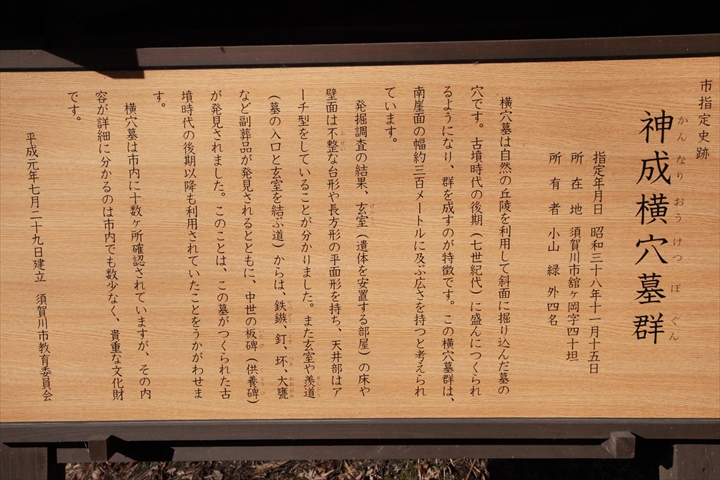 市指定史跡
神成横穴墓群
かんなりおうけつぼぐん
指定年月日 昭和三十八年十一月十五日
所在地 須賀川市舘ヶ岡字四十坦
所有者 小山 緑 外四名
横穴墓は自然の丘陵を利用して斜面に掘り込んだ墓の
穴です。古墳時代の後期(七世紀代)に盛んにつくられ
るようになり、群を成すのが特徴です。この横穴墓群は、
南崖面の幅約三百メートルに及ぶ広さを持つと考えられ
ています。
発掘調査の結果、玄室(遺体を安置する部屋)の床や
壁面は不整な台形や長方形の平面形を持ち、天井部はア
ーチ型をしていることが分かりました。また玄室や羨道
(墓の入口と玄室を結ぶ道)からは、鉄鏃、釘、坏、大甕
など副葬品が発見されるとともに、中世の板碑(供養碑)
が発見されました。このことは、この墓がつくられた古
墳時代の後期以降も利用されていたことをうかがわせま
す。
横穴墓は市内に十数ヶ所確認されていますが、その内
容が詳細に分かるのは市内でも数少なく、貴重な文化財
です。
平成元年七月二十九日建立 須賀川市教育委員会